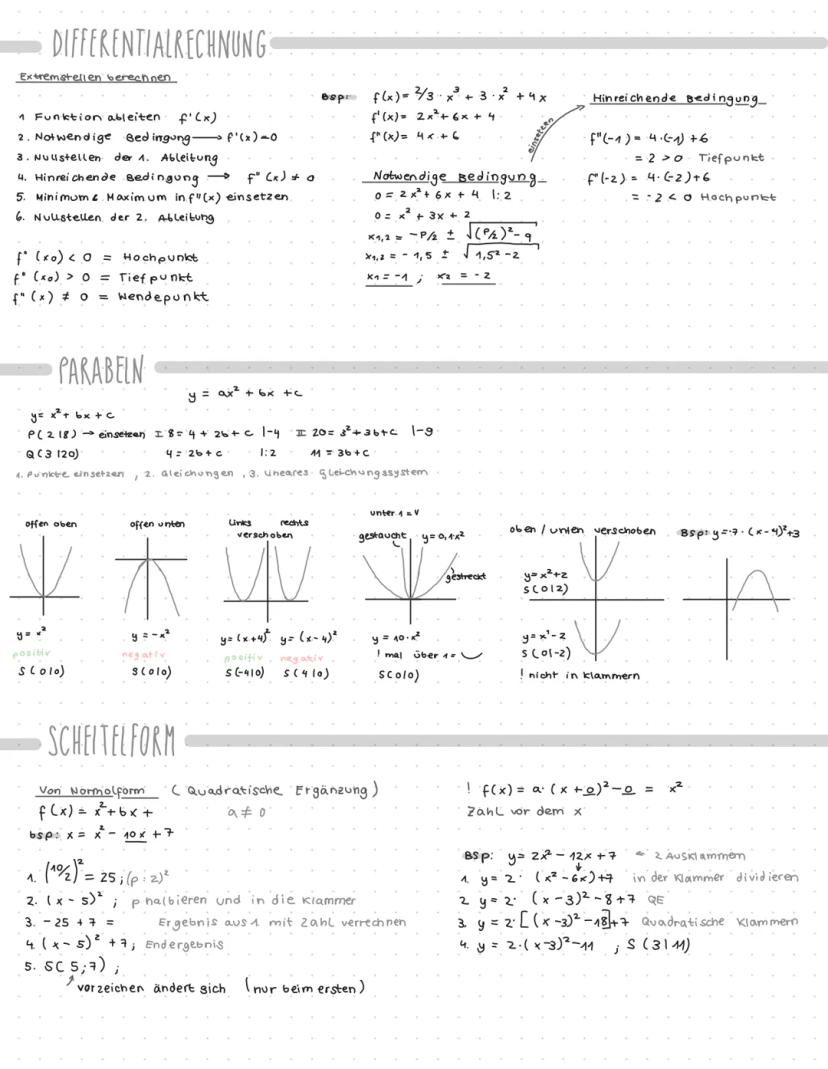 DIFFERENTIALRECHNUNG
Extremstellen berechnen
1 Funktion ableiten f'(x)
2. Notwendige Bedingung → f'(x)=0
3. Nullstellen der 1. Ableitung
4. Hinreichende Bedingung → f''(x) ≠ 0
5. Minimum & Maximum in f''(x) einsetzen
6. Nullstellen der 2. Ableitung
f''(x0) < 0 = Hochpunkt
f''(x0) > 0 = Tiefpunkt
f''(x) ≠ 0 = Wendepunkt
Bsp: f(x) = 2/3 · x³ + 3 · x² + 4x
f'(x) = 2x² + 6x + 4
f''(x) = 4x + 6
einsetzen
Notwendige Bedingung
0 = 2x² + 6x + 4 |:2
0 = x² + 3x + 2
x1,2 = -P/2 ± √(P/2)² - q
x1,2 = - 1,5 ± √1,5² - 2
x1 = -1 ; x2 = -2
Hinreichende Bedingung
f''(-1) = 4·(-1) + 6
= 2 > 0 Tiefpunkt
f''(-2) = 4·(-2) + 6
= -2 < 0 Hochpunkt
PARABELN
y = ax² + bx + c
y = x² + bx + c
P(2|8) → einsetzen I 8 = 4 + 2b + c |-4 II 20 = 3² + 3b + c |-9
Q(3|20) 4 = 2b + c |:2 11 = 3b + c
1. Punkte einsetzen, 2. Gleichungen, 3. Lineares Gleichungssystem
offen oben
y = x²
positiv
S(0|0)
offen unten
y = -x²
negativ
S(0|0)
Links rechts
verschoben
y = (x+4)² y = (x-4)²
positiv negativ
S(-4|0) S(4|0)
unter 1 = V
gestaucht y = 0,1x²
gestreckt
y = 10·x²
! mal über 1 =
S(0|0)
oben / unten verschoben
y = x² + 2
S(0|2)
y = x² - 2
S(0|-2)
! nicht in Klammern
Bsp: y = -7 · (x-4)² + 3
SCHEITELFORM
Von Normalform (Quadratische Ergänzung)
f(x) = x² + bx + a ≠ 0
bsp: x = x² - 10x + 7
1. (10/2)² = 25 ; (p:2)²
2. (x - 5)² ; p halbieren und in die Klammer
3. -25 + 7 = Ergebnis aus 1 mit Zahl verrechnen
4. (x - 5)² + 7 ; Endergebnis
5. S(5;7) ;
Vorzeichen ändert sich (nur beim ersten)
! f(x) = a · (x + 0)² - 0 = x²
Zahl vor dem x
Bsp: y = 2x² - 12x + 7 ← 2 Ausklammern
1. y = 2· (x² - 6x) + 7 in der Klammer dividieren
2 y = 2· (x - 3)² - 8 + 7 QE
3. y = 2· [(x - 3)² - 18] + 7 Quadratische Klammern
4. y = 2·(x-3)² - 11 ; S(3|11)